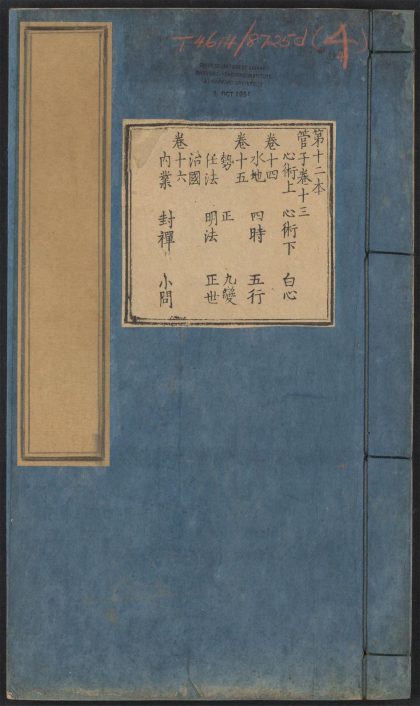 T4614/8725d(4)
CHINESE-JAPANESE LIBRARY
HARVARD-YENCHING INSTITUTE
AT HARVARD UNIVERSITY
OCT 1951
第十二本
管子卷十三
心術上 心術下 白心
卷十四
水地 四時 五行
卷十五
勢 正 九變
任法 明法 正世
治國
卷十六
內業 封禪 小問